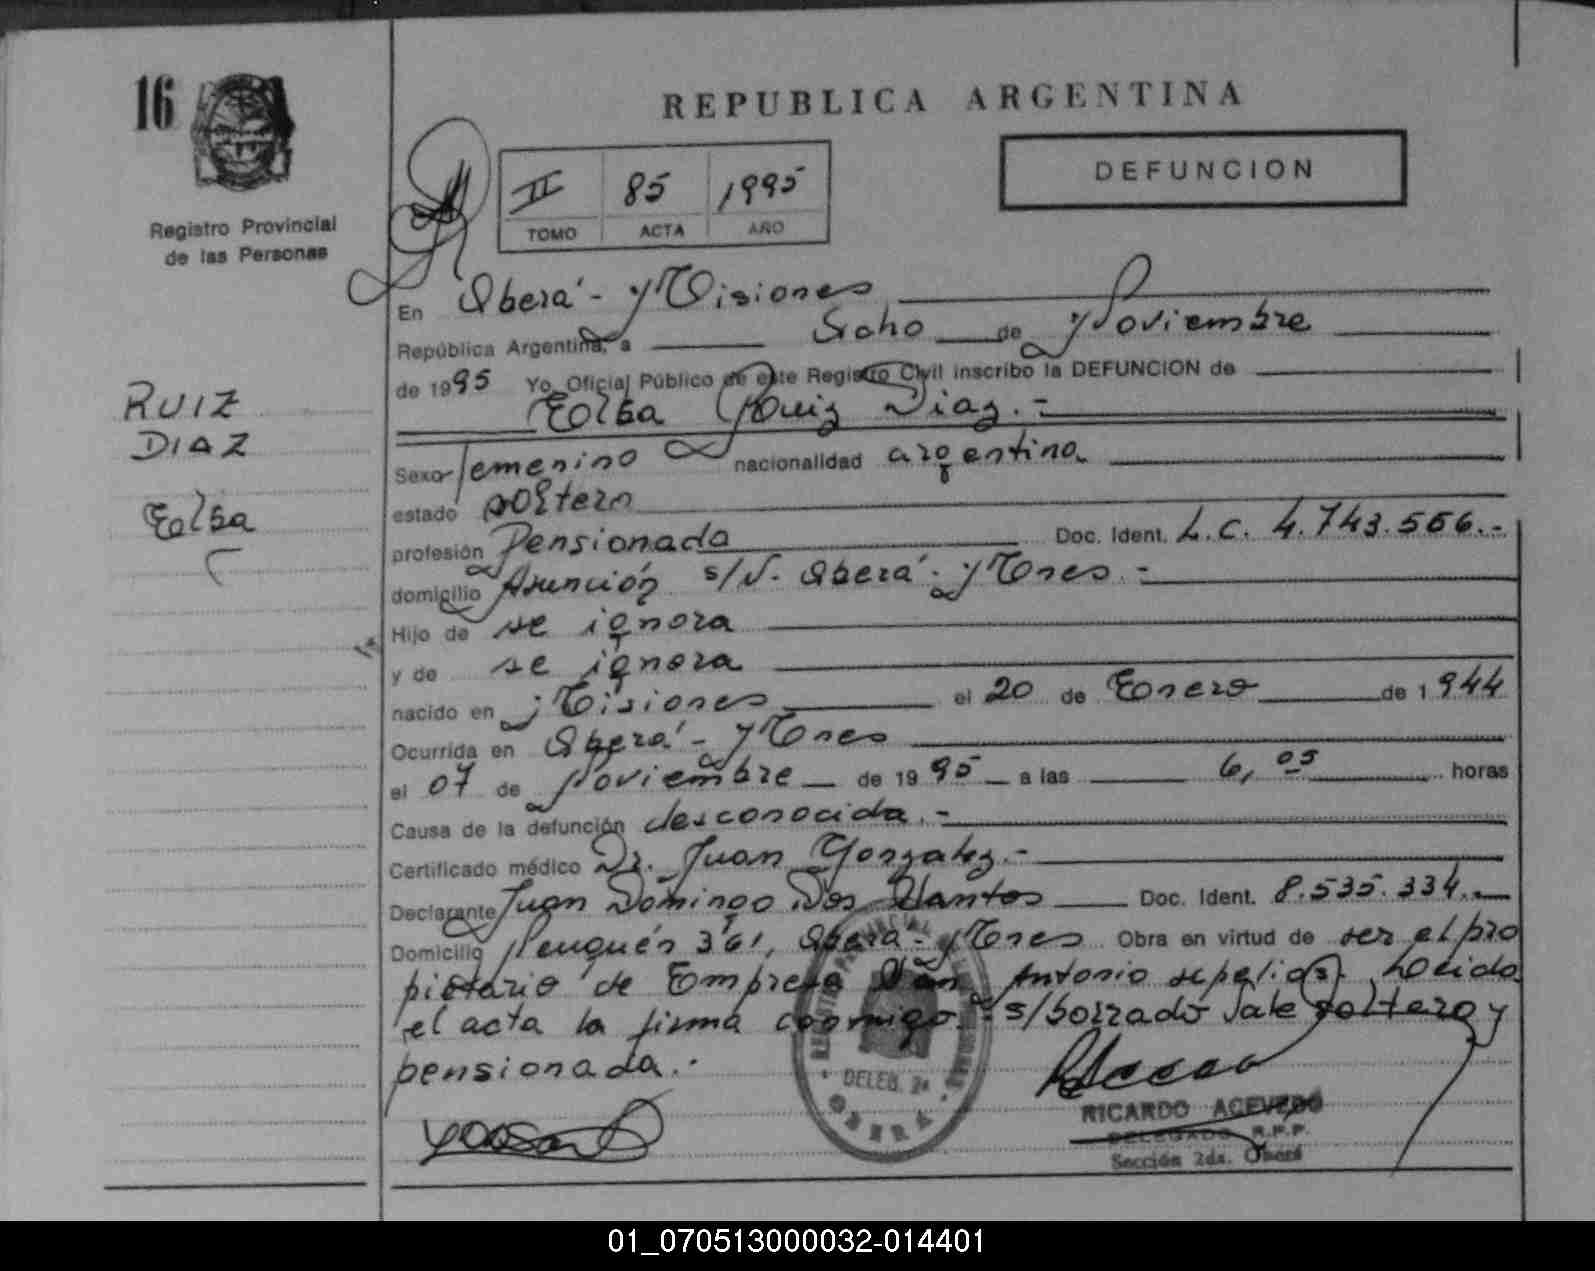 16
REPUBLICA ARGENTINA
DEFUNCION
II 85 1995
TOMO ACTA AÑO
Registro Provincial
de las Personas
RUIZ
DIAZ
Elba
En Oberá - Misiones
República Argentina, a Ocho de Noviembre
de 1995 Yo, Oficial Público de este Registro Civil inscribo la DEFUNCION de
Elba Ruiz Diaz.-
Sexo femenino nacionalidad argentina
estado soltero
profesión Pensionada Doc. Ident. L.C. 4.743.566.-
domicilio Asunción s/N. Oberá - Mnes.-
Hijo de se ignora
y de se ignora
nacido en Misiones el 20 de Enero de 1944
Ocurrida en Oberá - Mnes
el 07 de Noviembre de 1995 a las 6,05 horas
Causa de la defunción desconocida.-
Certificado médico Dr. Juan Gonzalez.-
Declarante Juan Domingo Dos Santos Doc. Ident. 8.535.334.-
Domicilio 361, Oberá - Mnes Obra en virtud de ser el pro
pietario de Empresa San Antonio sepelios. Leida
el acta la firma conmigo.- s/borrado vale soltero y
pensionada.-
DELEG. 2a
OBERA
RICARDO ACEVEDO
DELEGADO R.P.P.
Sección 2da. Oberá
01_070513000032-014401